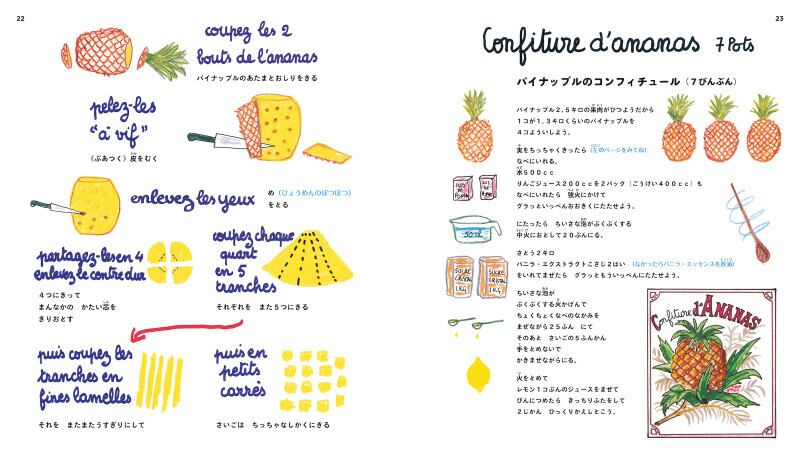 22
coupez les 2
bouts de l'ananas
パイナップルのあたまとおしりをきる
pelez-les
"à vif"
（ぶあつく）皮をむく
enlevez les yeux
め（ひょうめんのぽつぽつ）
をとる
partagez-les en 4
enlevez le centre dur
４つにきって
まんなかの かたい芯を
きりおとす
coupez chaque
quart
en 5
tranches
それぞれを また５つにきる
puis coupez les
tranches en
fines lamelles
それを またまたうすぎりにして
puis en
petits
carrés
さいごは ちっちゃなしかくにきる
23
Confiture d'ananas 7 Pots
パイナップルのコンフィチュール（７びんぶん）
パイナップル２.５キロの果肉がひつようだから
１つが１.３キロくらいのパイナップルを
４コよういしよう。
実をちっちゃくきったら（左のページをみてね）
なべにいれる。
水５００cc
りんごジュース２００ccを２パック（ごうけい４００cc）も
なべにいれたら 強火にかけて
グラっといっぺんおおきくにたたせよう。
にたったら ちいさな泡がぷくぷくする
中火におとして２０ぷんにる。
さとう２キロ
バニラ・エクストラクトこさじ２はい（なかったらバニラ・エッセンスを数滴）
をいれてまぜたら グラっともういっぺんにたたせよう。
ちいさな泡が
ぷくぷくする火かげんで
ちょくちょくなべのなかみを
まぜながら２５ふん にて
そのあと さいごの５ふんかん
手をとめないで
かきまぜながらにる。
火をとめて
レモン１コぶんのジュースをまぜて
びんにつめたら きっちりふたをして
２じかん ひっくりかえしとこう。
50 cl
SUCRE
CRISTAL
1KG
SUCRE
CRISTAL
1KG
Confiture d'ANANAS